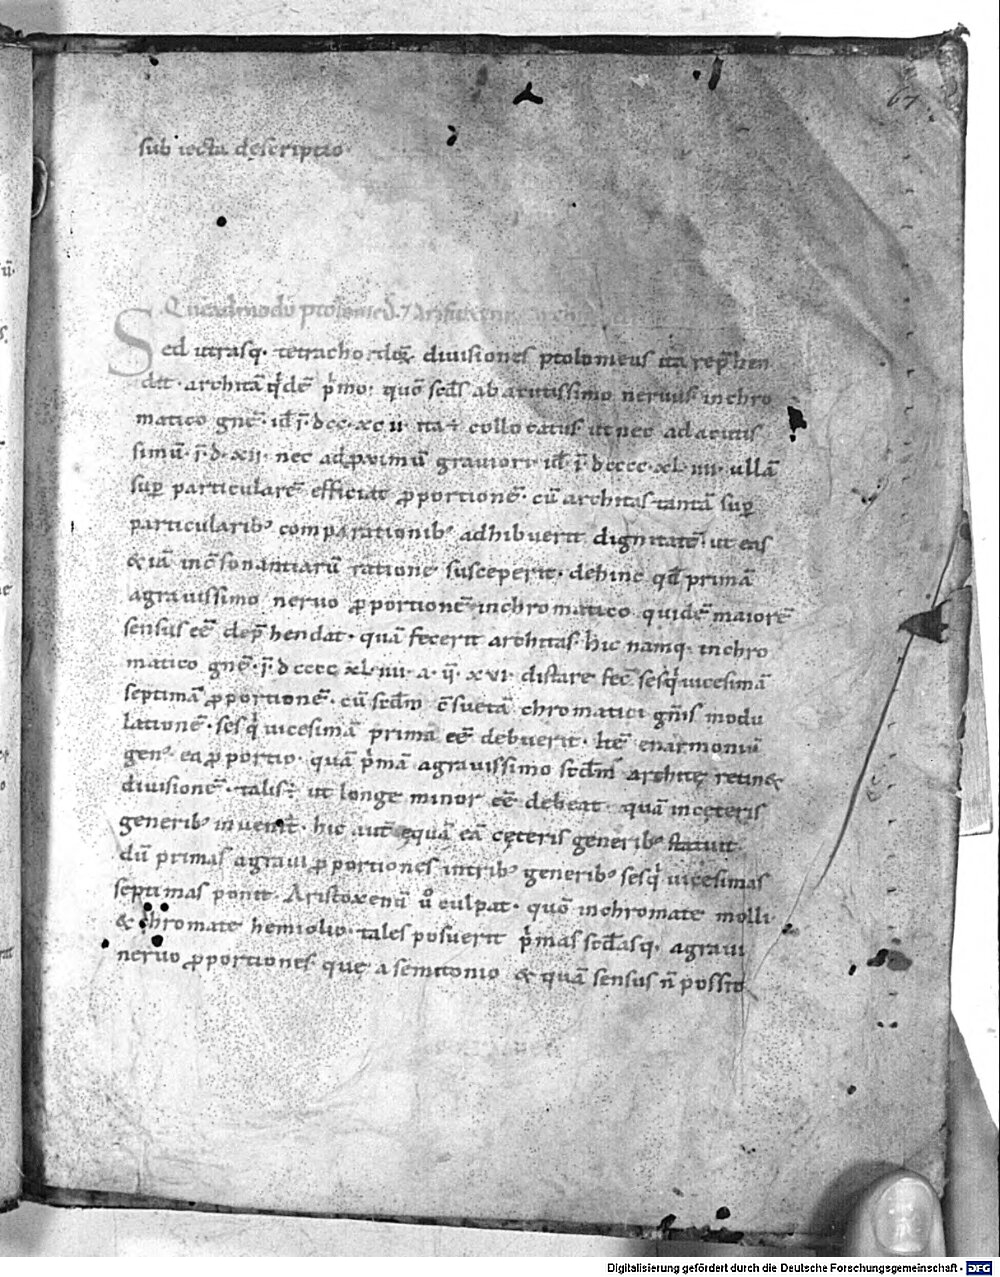 67
sub iecta descriptio
Quēadmodū ptolomeꝰ ⁊ Aristoxeni
Sed utrasq· tetrachordoꝝ diuisiones ptolomeus ita rep̄hen
dit· architā q̇dē p̍mo· quō scd̄s ab acutissimo neruus in chro
matico gn̄e· id̄ ī· dcc· xc ii· ita ÷ collocatus ut nec ad acutis
simū· ī· d· xii· nec ad ꝓximū grauiorē id̄ ī· dcccc· xl· iiii· ullā
suꝑ particularē efficiat ꝓportionē· cū architas tantā suꝑ
particularibꝰ comparationibꝰ adhibuerit dignitatē· ut eas
& iā in cōsonantiarū ratione susceperit· dehinc qđ primā
a grauissimo neruo ꝓportionē in chromatico quidē maiorē
sensus eē dep̄hendat· quā fecerit architas· hic namq· in chro
matico gn̄e· ī· dcccc xl· iiii· a· ii· xvi· distare fec̄ sesq̇uicesimā
septimā ꝓportionē· cū scd̄m cōsuetā chromatici gn̄is modu
lationē· sesq̇ uicesimā primā eē debuerit· Itē enarmoniū
genꝰ ea ꝓportio· quā p̍mā a grauissimo scd̄m architę retin&
diuisionē· talis ÷ ut longe minor eē debeat· quā in cęteris
generibꝰ inuenit̄· hic aut̄ ęquā eā cęteris generibꝰ statuit·
dū primas a graui ꝓportiones in tribꝰ generibꝰ sesq̇ uicesimas
septimas ponit· Aristoxenū u̇ culpat· quō in chromate molli·
& chromate hemiolio· tales posuerit p̍mas scd̄asq· a graui
neruo ꝓportiones que a semitonio & quā sensus n̄ possit
Digitalisierung gefördert durch die Deutsche Forschungsgemeinschaft · DFG